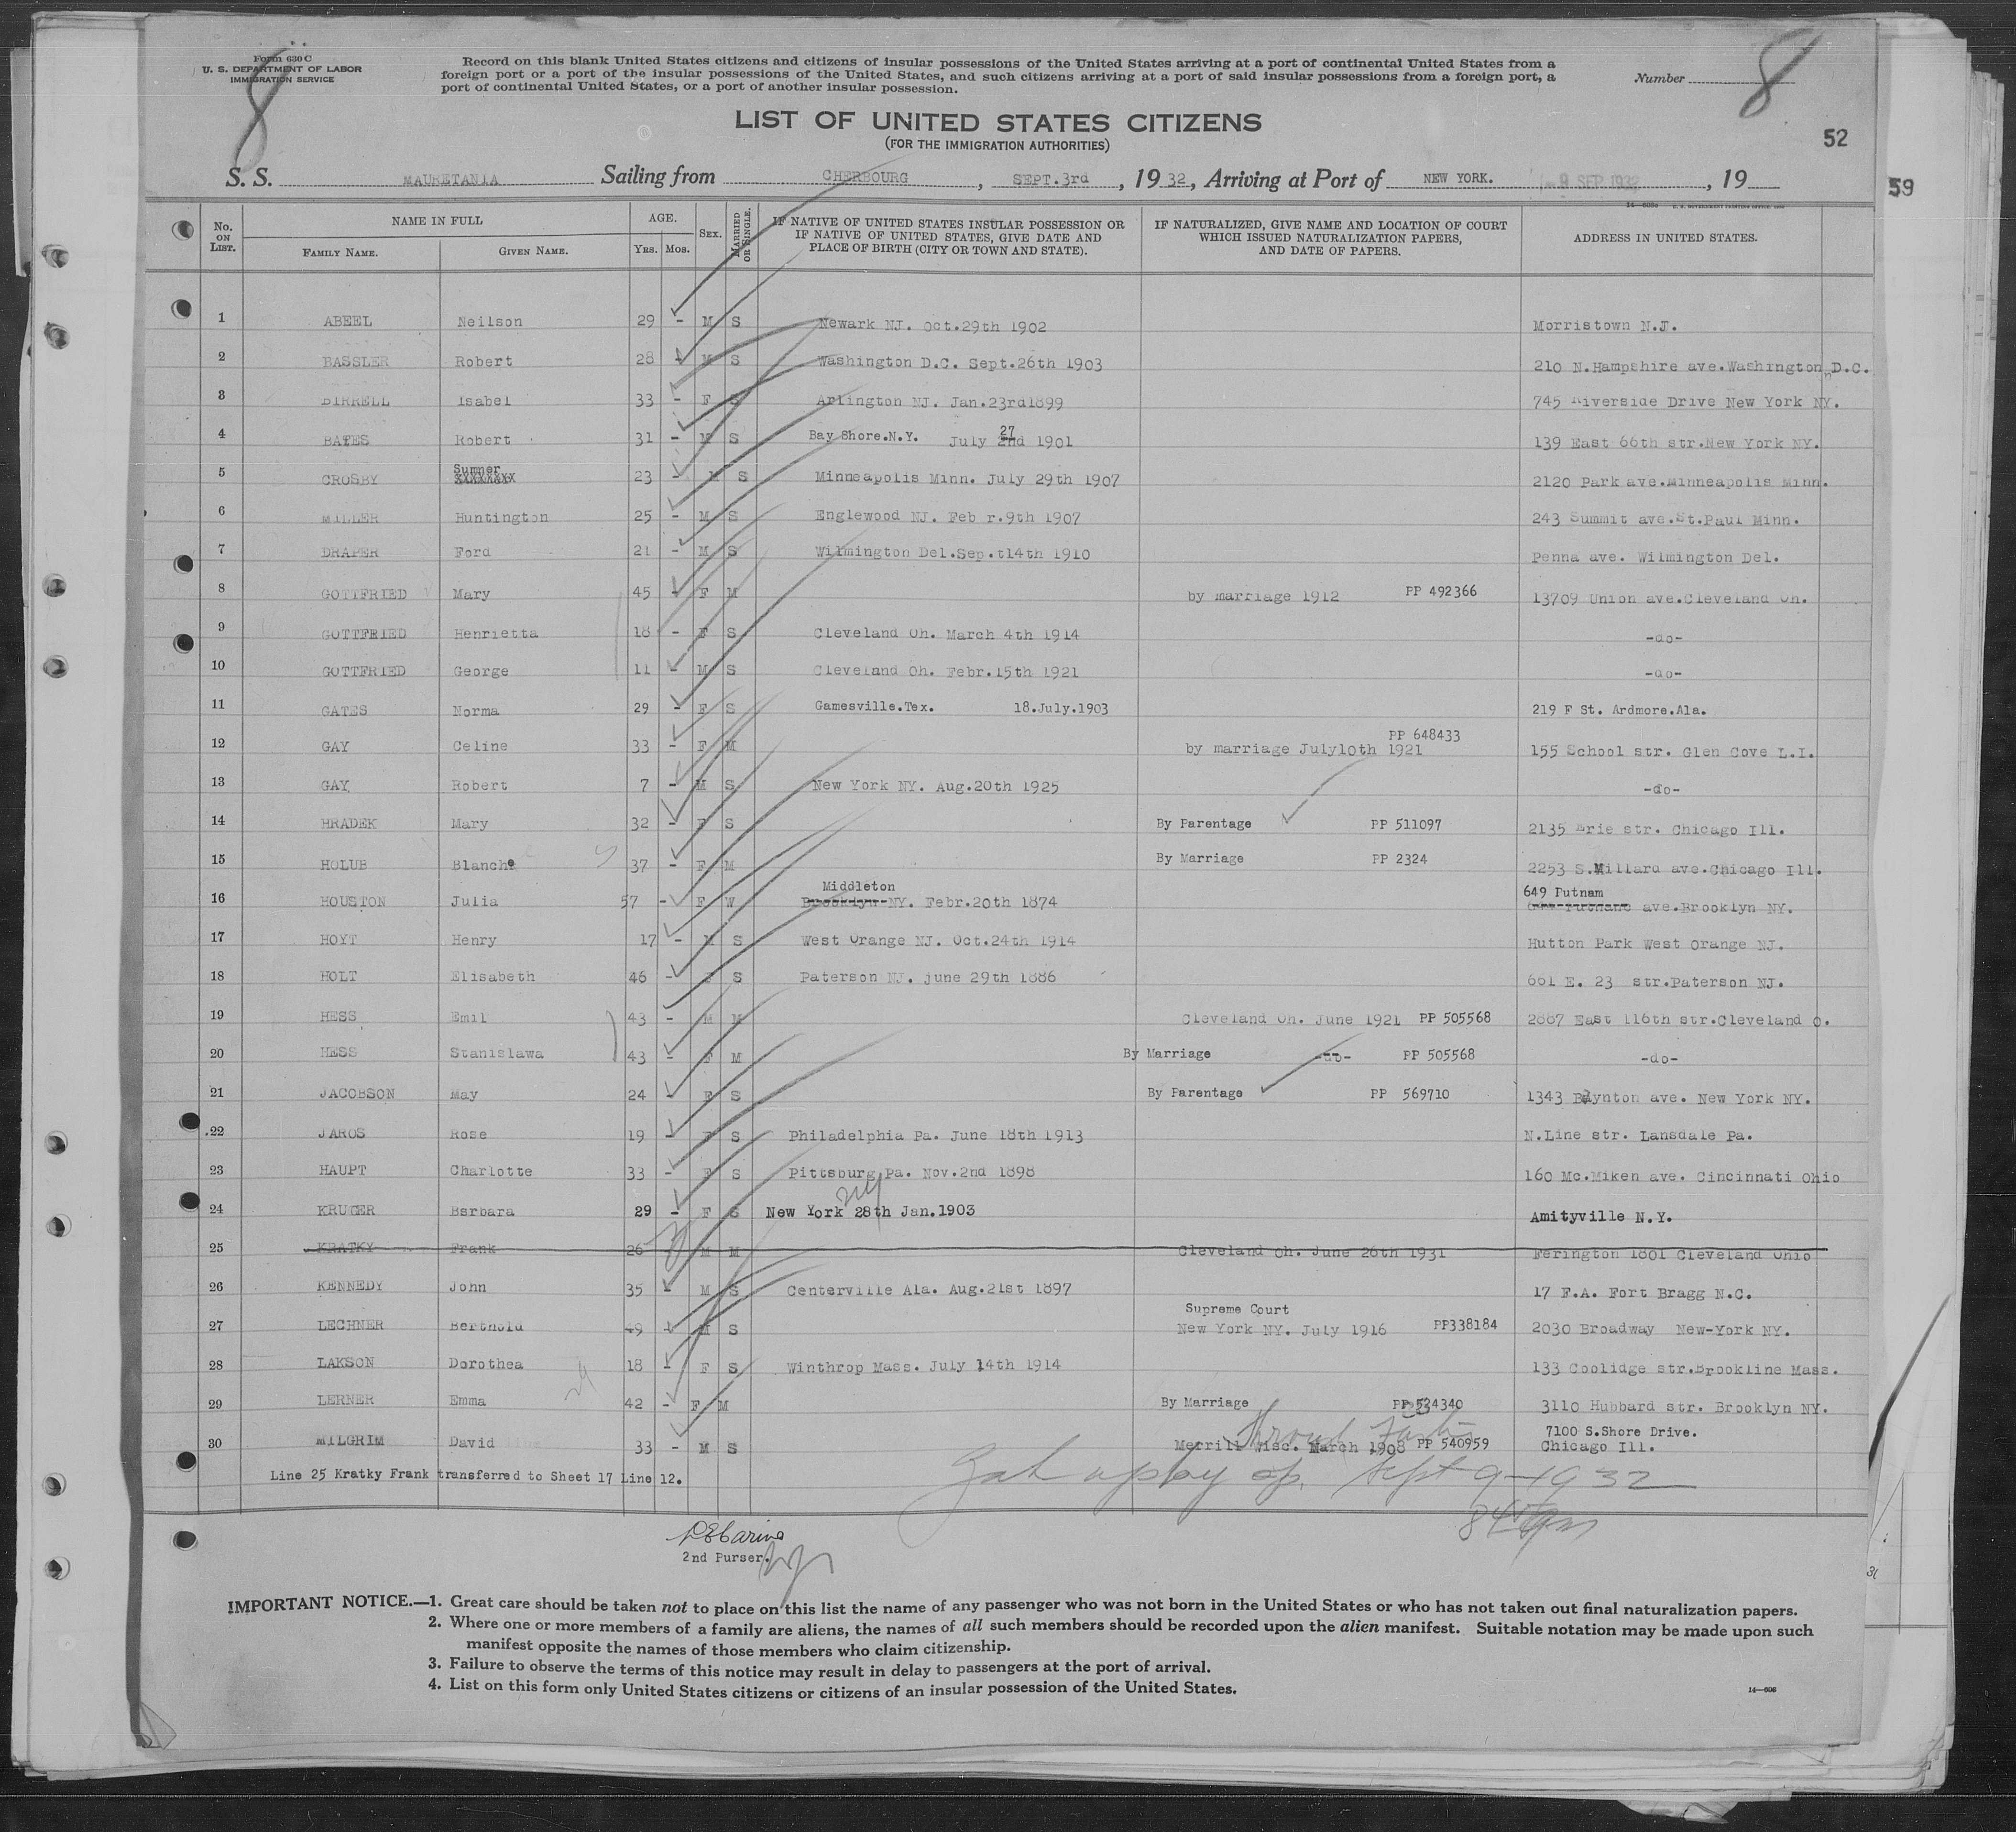 Form 630 C
U. S. DEPARTMENT OF LABOR
IMMIGRATION SERVICE
8
Record on this blank United States citizens and citizens of insular possessions of the United States arriving at a port of continental United States from a
foreign port or a port of the insular possessions of the United States, and such citizens arriving at a port of said insular possessions from a foreign port, a
port of continental United States, or a port of another insular possession.
Number 8
LIST OF UNITED STATES CITIZENS
(FOR THE IMMIGRATION AUTHORITIES)
52
59
S. S. MAURETANIA Sailing from CHERBOURG, SEPT.3rd, 1932, Arriving at Port of NEW YORK. -9 SEP 1932, 19
No. ON LIST. NAME IN FULL FAMILY NAME. GIVEN NAME. AGE. YRS. MOS. SEX. MARRIED OR SINGLE. IF NATIVE OF UNITED STATES INSULAR POSSESSION OR IF NATIVE OF UNITED STATES, GIVE DATE AND PLACE OF BIRTH (CITY OR TOWN AND STATE). IF NATURALIZED, GIVE NAME AND LOCATION OF COURT WHICH ISSUED NATURALIZATION PAPERS, AND DATE OF PAPERS. ADDRESS IN UNITED STATES.
1 ABEEL Neilson 29 - M S Newark NJ. Oct.29th 1902 Morristown N.J.
2 BASSLER Robert 28 - M S Washington D.C. Sept.26th 1903 210 N.Hampshire ave.Washington D.C.
3 BIRRELL Isabel 33 - F S Arlington NJ. Jan.23rd1899 745 Riverside Drive New York NY.
4 BATES Robert 31 - M S Bay Shore.N.Y. July 2nd 27 1901 139 East 66th str.New York NY.
5 CROSBY Sumner xxxxxxxx 23 - M S Minneapolis Minn. July 29th 1907 2120 Park ave.Minneapolis Minn.
6 MILLER Huntington 25 - M S Englewood NJ. Feb r.9th 1907 243 Summit ave.St.Paul Minn.
7 DRAPER Ford 21 - M S Wilmington Del.Sep.t14th 1910 Penna ave. Wilmington Del.
8 GOTTFRIED Mary 45 - F M by marriage 1912 PP 492366 13709 Union ave.Cleveland Oh.
9 GOTTFRIED Henrietta 18 - F S Cleveland Oh. March 4th 1914 -do-
10 GOTTFRIED George 11 - M S Cleveland Oh. Febr.15th 1921 -do-
11 GATES Norma 29 - F S Gamesville.Tex. 18.July.1903 219 F St. Ardmore.Ala.
12 GAY Celine 33 - F M by marriage July10th 1921 PP 648433 155 School str. Glen Cove L.I.
13 GAY Robert 7 - M S New York NY. Aug.20th 1925 -do-
14 HRADEK Mary 32 - F S By Parentage PP 511097 2135 Erie str. Chicago Ill.
15 HOLUB Blanche 37 - F M By Marriage PP 2324 2253 S.Millard ave.Chicago Ill.
16 HOUSTON Julia 57 - F W Middleton Brooklyn NY. Febr.20th 1874 649 Putnam ave.Brooklyn NY.
17 HOYT Henry 17 - M S West Orange NJ. Oct.24th 1914 Hutton Park West Orange NJ.
18 HOLT Elisabeth 46 - F S Paterson NJ. june 29th 1886 661 E. 23 str.Paterson NJ.
19 HESS Emil 43 - M M Cleveland Oh. June 1921 PP 505568 2887 East 116th str.Cleveland O.
20 HESS Stanislawa 43 - F M By Marriage -do- PP 505568 -do-
21 JACOBSON May 24 - F S By Parentage PP 569710 1343 Boynton ave. New York NY.
22 JAROS Rose 19 - F S Philadelphia Pa. June 18th 1913 N.Line str. Lansdale Pa.
23 HAUPT Charlotte 33 - F S Pittsburg Pa. Nov.2nd 1898 160 Mc.Miken ave. Cincinnati Ohio
24 KRUGER Barbara 29 - F S New York 28th Jan.1903 Amityville N.Y.
25 KRATKY Frank 26 M M Cleveland Oh. June 26th 1931 Ferington 1801 Cleveland Ohio
26 KENNEDY John 35 - M S Centerville Ala. Aug.21st 1897 17 F.A. Fort Bragg N.C.
27 LECHNER Berthold 49 - M S Supreme Court New York NY. July 1916 PP338184 2030 Broadway New-York NY.
28 LAKSON Dorothea 18 - F S Winthrop Mass. July 14th 1914 133 Coolidge str.Brookline Mass.
29 LERNER Emma 42 - F M By Marriage PP 534340 3110 Hubbard str. Brooklyn NY.
30 MILGRIM David 33 - M S Merrill Wisc. March 1908 PP 540959 7100 S.Shore Drive. Chicago Ill.
Line 25 Kratky Frank transferred to Sheet 17 Line 12.
Sept 9-1932
2nd Purser.
IMPORTANT NOTICE.—1. Great care should be taken not to place on this list the name of any passenger who was not born in the United States or who has not taken out final naturalization papers.
2. Where one or more members of a family are aliens, the names of all such members should be recorded upon the alien manifest. Suitable notation may be made upon such
manifest opposite the names of those members who claim citizenship.
3. Failure to observe the terms of this notice may result in delay to passengers at the port of arrival.
4. List on this form only United States citizens or citizens of an insular possession of the United States.
14—608